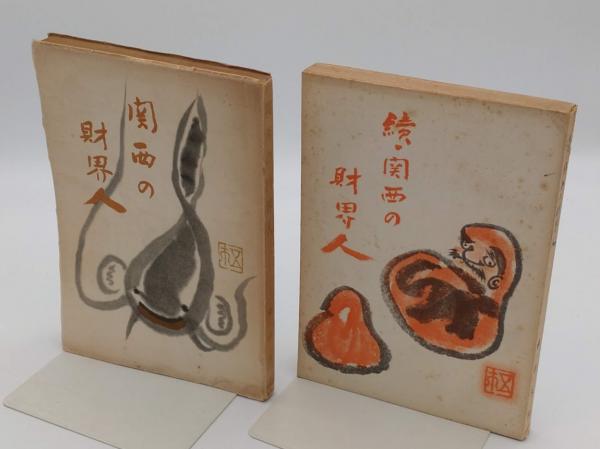 関西の
財界人
続・関西の
財界人